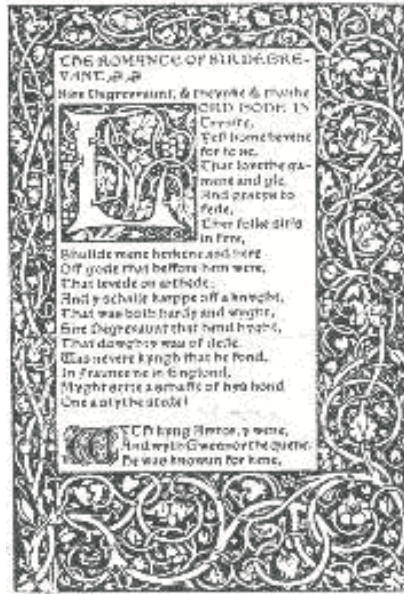 THE ROMANCE OF SIR DEGRE-
VANT.
Sire Degrevaunt, &
LORD GODE IN
Trenite,
Yeff home hevene
for to se,
That loveth
and gle,
And
fede,
folke
in fere,
Shullde mene herkene and here
Off gode that beffore hem were,
That levede on arthede.
And y schalle karppe off a knyght,
That was both hardy and wyght,
Sire Degrevaunt that hend hyght,
That dowghty was of dede.
Was nevere kyngh that he fond,
In Fraunce ne in Englond,
Myght sette a of hys hond
One a stythe stede!
WYTH kyng Arrtor, y wene,
And wyth Gwennor the quene,
He was knowun for kene,